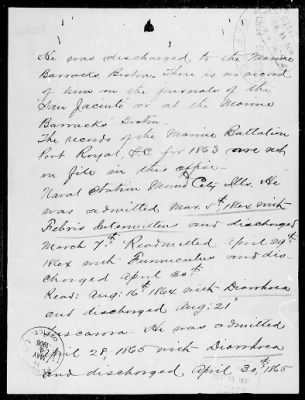 He was discharged to the Marine
Barracks, Boston. There is no record
of him on the journals of the
"San Jacinto" or at the Marine
Barracks Boston.
The records of the Marine Battalion
Port Royal, S.C. for 1863 are not
on file in this office.
Naval Station Mound City, Ills. He
was admitted Mar. 5th 1864 with
Febris Intermittens and discharged
March 7th. Readmitted April 29th
1864 with Furunculus and dis-
charged April 30th
Read: Aug: 16th 1864 with Diarrhoea
and discharged Aug: 21st
He was admitted
April 28, 1865 with Diarrhoea
and discharged April 30th 1865
MAY